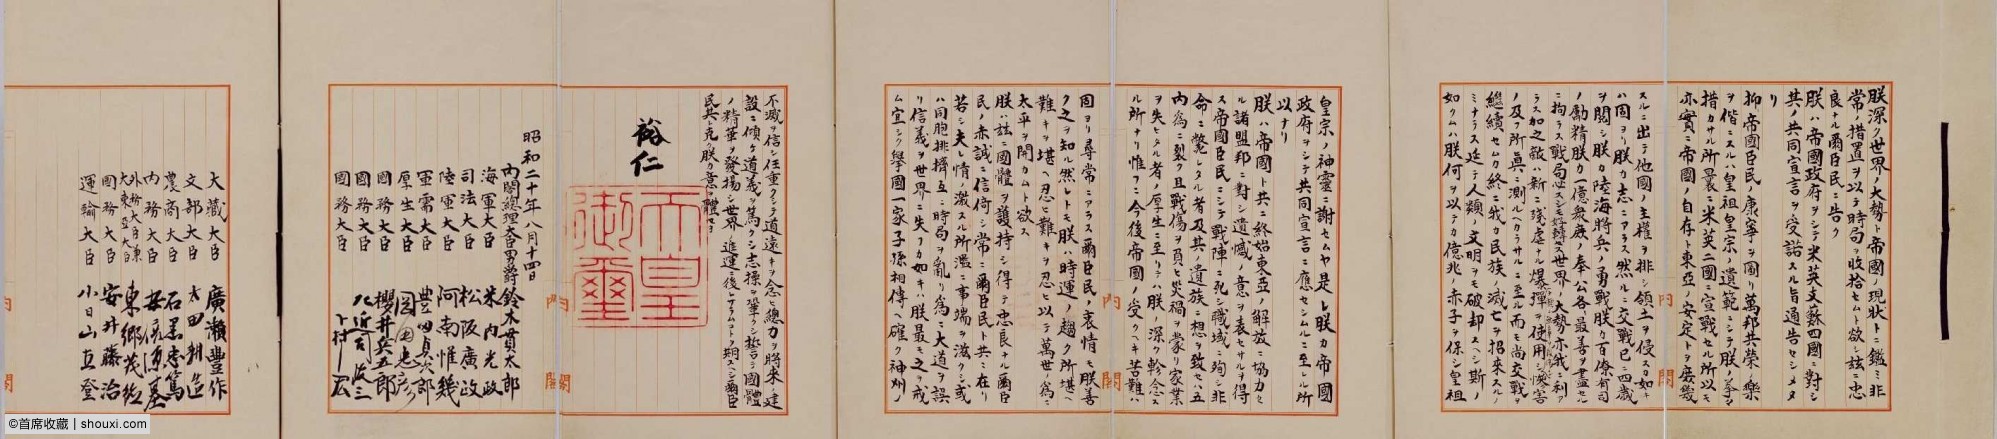 朕深ク世界ノ大勢ト帝國ノ現狀トニ鑑ミ非
常ノ措置ヲ以テ時局ヲ收拾セムト欲シ茲ニ忠
良ナル爾臣民ニ告ク
朕ハ帝國政府ヲシテ米英支蘇四國ニ對シ
其ノ共同宣言ヲ受諾スル旨通告セシメタ
リ
抑帝國臣民ノ康寧ヲ圖リ萬邦共榮ノ樂
ヲ偕ニスルハ皇祖皇宗ノ遺範ニシテ朕ノ拳々
措カサル所曩ニ米英二國ニ宣戰セル所以モ
亦實ニ帝國ノ自存ト東亞ノ安定トヲ庶幾
スルニ出テ他國ノ主權ヲ排シ領土ヲ侵スカ如キ
ハ固ヨリ朕カ志ニアラス然ルニ交戰已ニ四歲
ヲ閱シ朕カ陸海將兵ノ勇戰朕カ百僚有司
ノ勵精朕カ一億衆庶ノ奉公各最善ヲ盡セル
ニ拘ラス戰局必スシモ好轉セス世界ノ大勢亦我ニ利ア
ラス加之敵ハ新ニ殘虐ナル爆彈ヲ使用シ慘害
ノ及フ所眞ニ測ルヘカラサルニ至ル而モ尚交戰ヲ
繼續セムカ終ニ我カ民族ノ滅亡ヲ招來スルノ
ミナラス延テ人類ノ文明ヲモ破却スヘシ斯ノ
如クムハ朕何ヲ以テカ億兆ノ赤子ヲ保シ皇祖
皇宗ノ神靈ニ謝セムヤ是レ朕カ帝國
政府ヲシテ共同宣言ニ應セシムルニ至レル所
以ナリ
朕ハ帝國ト共ニ終始東亞ノ解放ニ協力セ
ル諸盟邦ニ對シ遺憾ノ意ヲ表セサルヲ得
ス帝國臣民ニシテ戰陣ニ死シ職域ニ殉シ非
命ニ斃レタル者及其ノ遺族ニ想ヲ致セハ五
內爲ニ裂ク且戰傷ヲ負ヒ災禍ヲ蒙リ家業
ヲ失ヒタル者ノ厚生ニ至リテハ朕ノ深ク軫念ス
ル所ナリ惟フニ今後帝國ノ受クヘキ苦難ハ
固ヨリ尋常ニアラス爾臣民ノ衷情モ朕善
ク之ヲ知ル然レトモ朕ハ時運ノ趨ク所堪ヘ
難キヲ堪ヘ忍ヒ難キヲ忍ヒ以テ萬世ノ爲ニ
太平ヲ開カムト欲ス
朕ハ茲ニ國體ヲ護持シ得テ忠良ナル爾臣
民ノ赤誠ニ信倚シ常ニ爾臣民ト共ニ在リ
若シ夫レ情ノ激スル所濫ニ事端ヲ滋クシ或
ハ同胞排擠互ニ時局ヲ亂リ爲ニ大道ヲ誤
リ信義ヲ世界ニ失フカ如キハ朕最モ之ヲ戒
ム宜シク擧國一家子孫相傳ヘ確ク神州ノ
不滅ヲ信シ任重クシテ道遠キヲ念ヒ總力ヲ將來ノ建
設ニ傾ケ道義ヲ篤クシ志操ヲ鞏クシ誓テ國體
ノ精華ヲ發揚シ世界ノ進運ニ後レサラムコトヲ期スヘシ爾臣
民其レ克ク朕カ意ヲ體セヨ
裕仁
天皇
御璽
昭和二十年八月十四日
內閣總理大臣男爵 鈴木貫太郎
海軍大臣 米內光政
司法大臣 松阪廣政
陸軍大臣 阿南惟幾
軍需大臣 豊田貞次郎
厚生大臣 岡田忠彦
國務大臣 櫻井兵五郎
國務大臣 左近司政三
國務大臣 下村宏
大藏大臣 廣瀬豊作
文部大臣 太田耕造
農商大臣 石黒忠篤
內務大臣 安倍源基
外務大臣兼
大東亞大臣 東郷茂徳
國務大臣 安井藤治
運輸大臣 小日山直登
內閣
內閣
內閣
©首席收藏 | shouxi.com